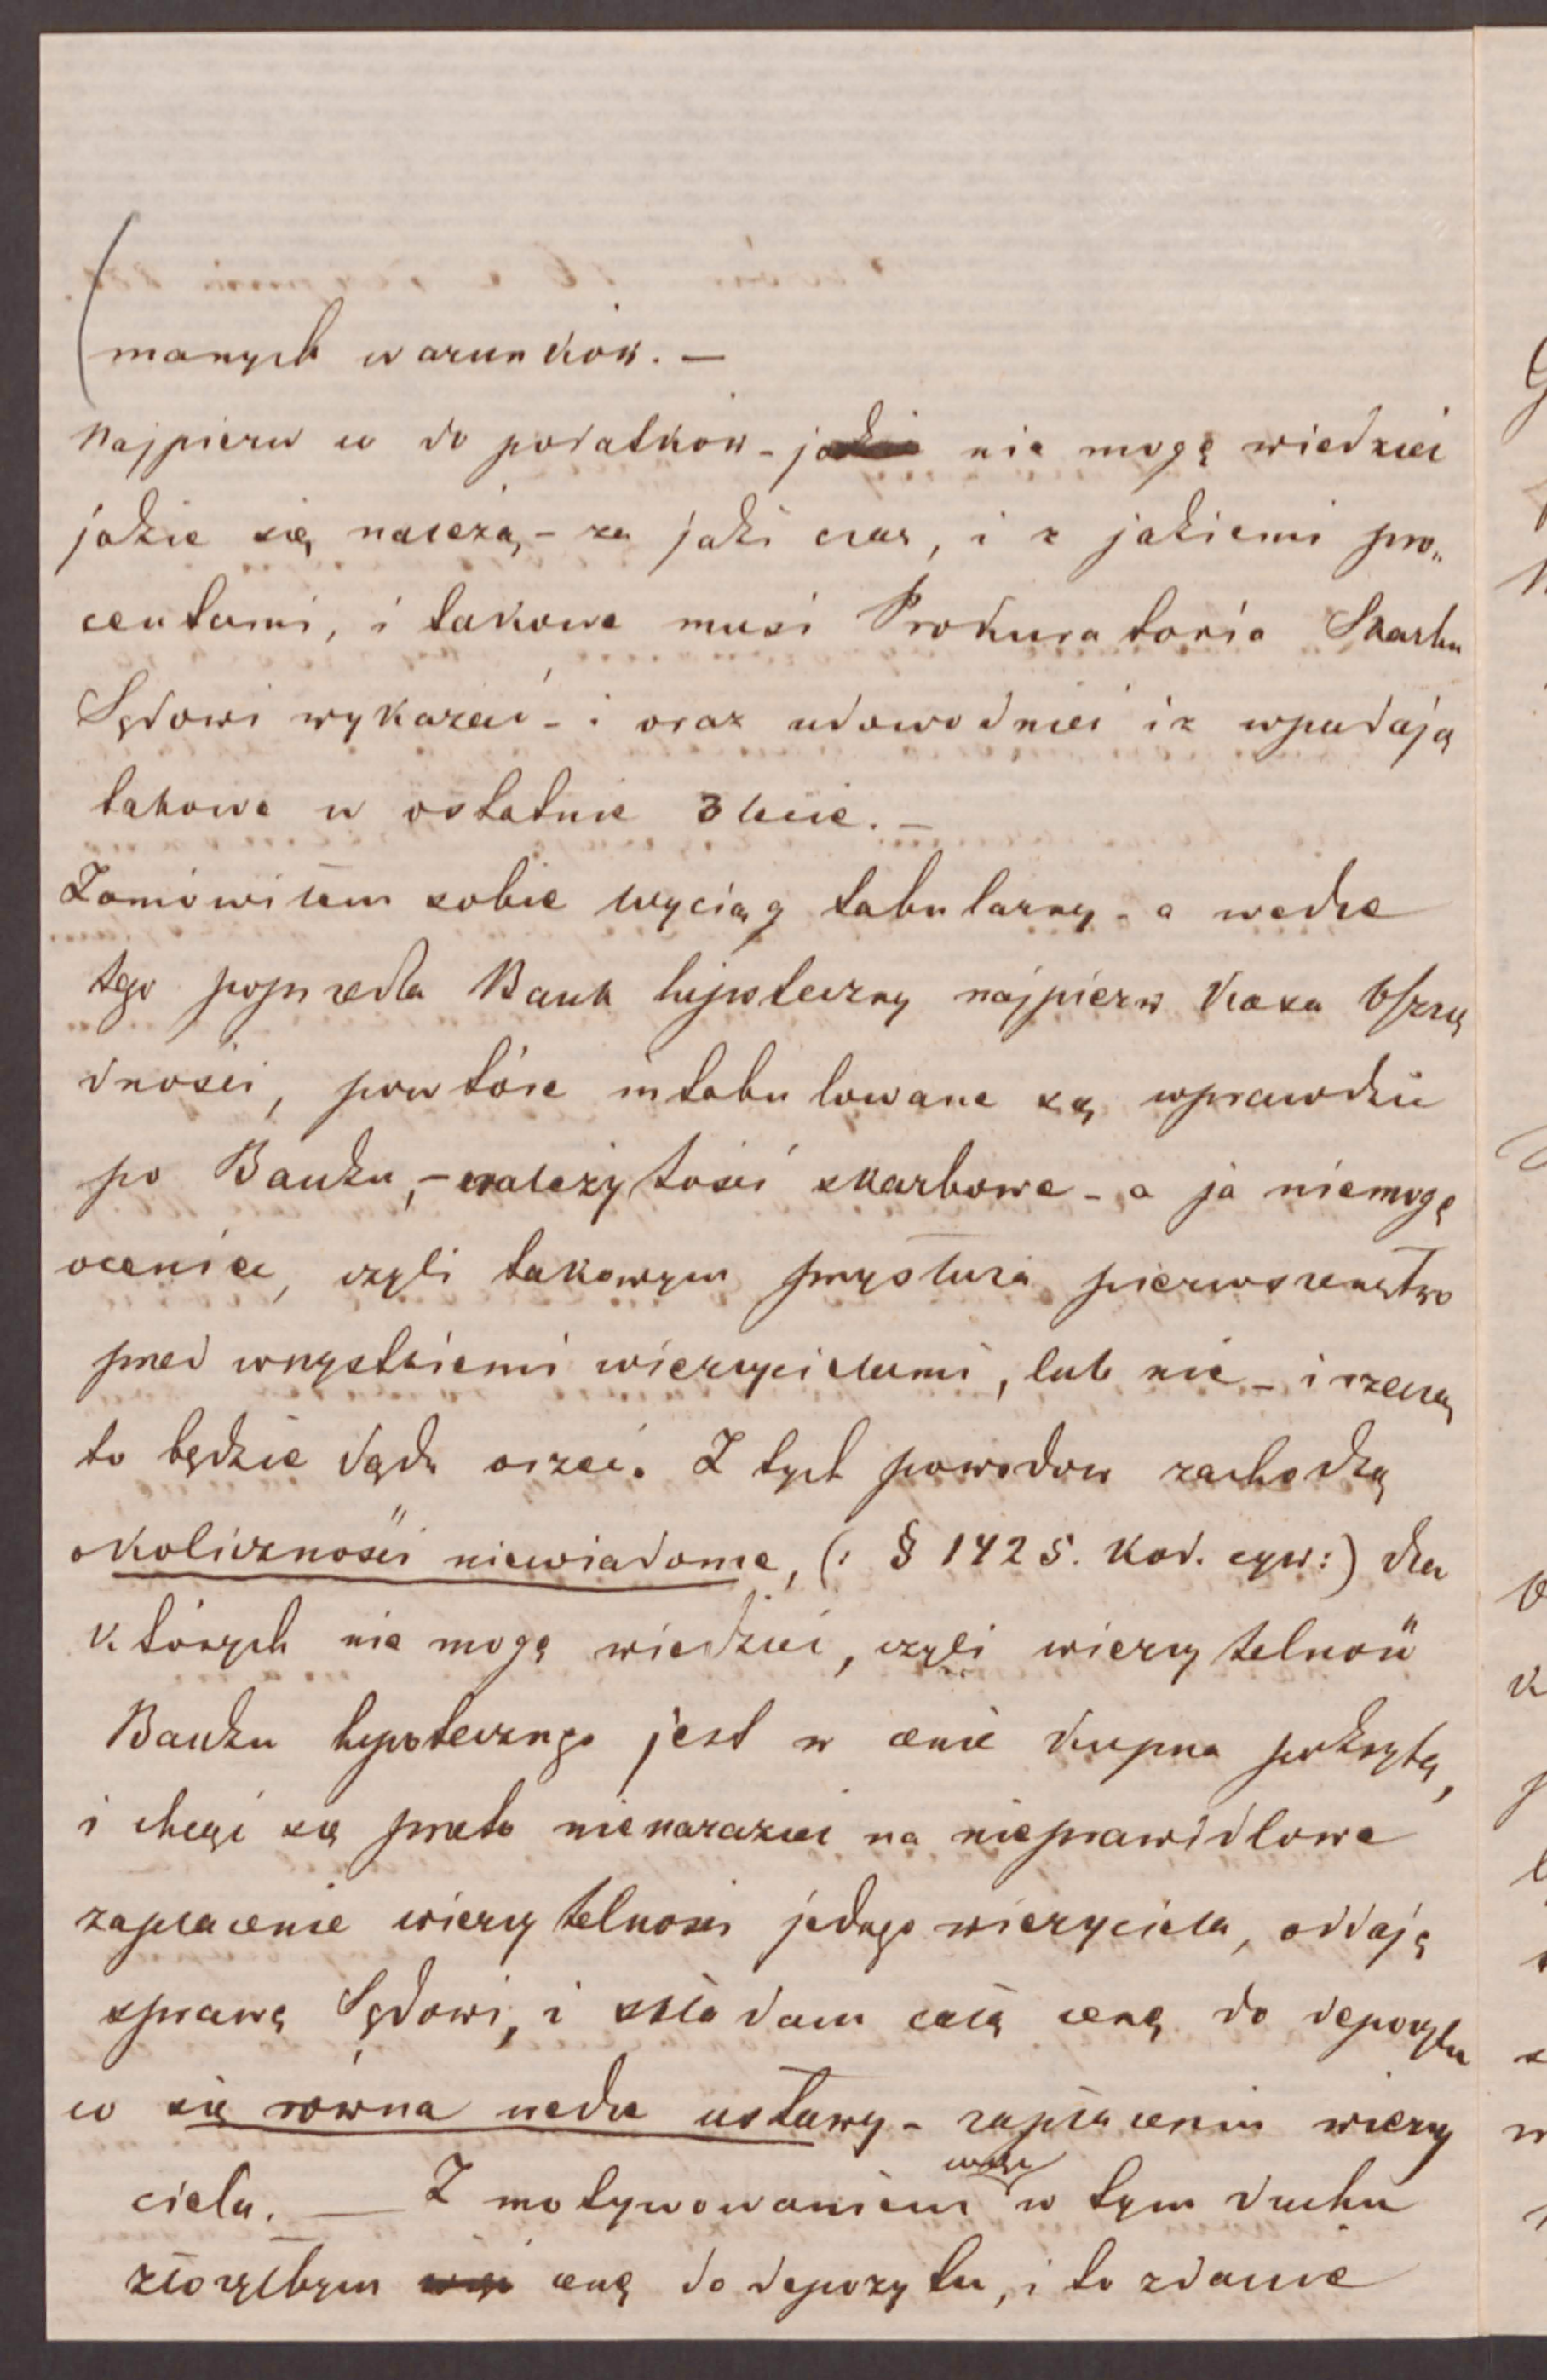 manych warunków. —
Najpierw co do podatków - nie mogę wiedzieć
jakie się należą, - za jaki czas, i z jakiemi pro„
centami, i takowe musi Prokuratoria Skarbu
Sądowi wykazać - i oraz udowodnić iż wpadają
takowe w ostatnie 3 lecie. —
Zamówiłem sobie wyciąg tabularny - a wedle
tego poprzedza Bank hipoteczny najpierw Kasa Oszczę
dności, powtóre intabulowane są wprawdzie
po Banku, - należytości skarbowe - a ja niemogę
ocenić, czyli takowym przysłuża pierwszeństwo
przed wszystkiemi wierzycielami, lub nie - i rzeczą
to będzie Sądu orzec. Z tych powodów zachodzą
okoliczności niewiadome, (: § 1425. Kod. cyw:) dla
których nie mogę wiedzieć, czyli wierzytelność
Banku hipotecznego jest w cenie kupna pokrytą,
i chcąc się przeto nienarazić na nieprawidłowe
zapłacenie wierzytelności jednego wierzyciela, oddają
sprawę Sądowi, i składam całą cenę do depozytu
co się równa wedle ustawy - zapłaceniu wierzy
ciela. — Z motywowaniem w tym duchu
złożyłbym cenę do depozytu, i to zdanie